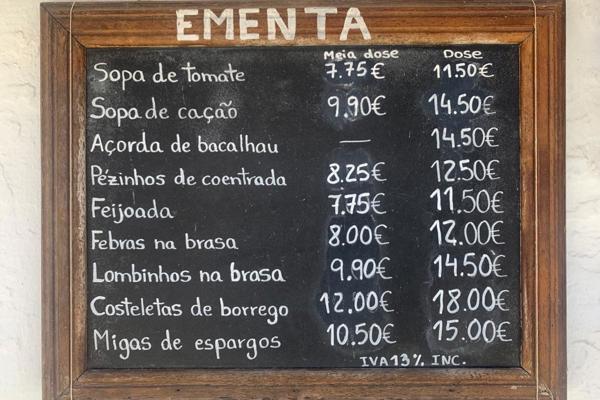 EMENTA
Meia dose Dose
Sopa de tomate 7.75€ 11.50€
Sopa de cação 9.90€ 14.50€
Açorda de bacalhau — 14.50€
Pézinhos de coentrada 8.25€ 12.50€
Feijoada 7.75€ 11.50€
Febras na brasa 8.00€ 12.00€
Lombinhos na brasa 9.90€ 14.50€
Costeletas de borrego 12.00€ 18.00€
Migas de espargos 10.50€ 15.00€
IVA 13% INC.